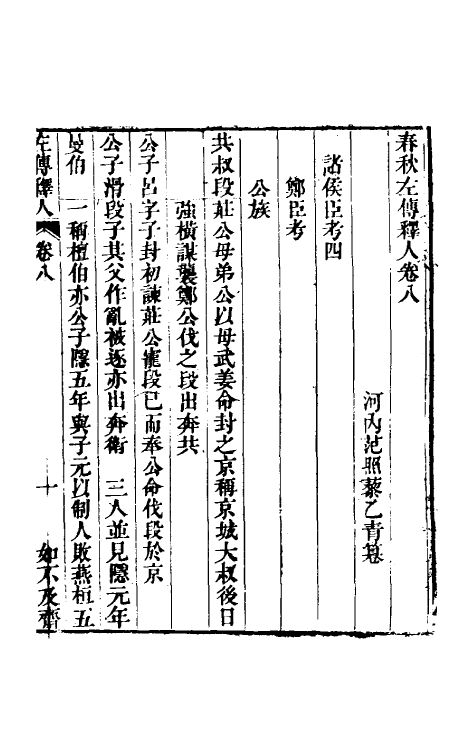 春秋左傳釋人卷八
河內范照藜乙青篹
諸侯臣考四
鄭臣考
公族
共叔段莊公母弟公以母武姜命封之京稱京城大叔後日
強橫謀襲鄭公伐之段出奔共
公子呂字子封初諫莊公寵段已而奉公命伐段於京
公子滑段子其父作亂被逐亦出奔衛 三人並見隱元年
曼伯 一稱檀伯亦公子隱五年與子元以制人敗燕桓五
左傳釋人 卷八 十 如不及齋